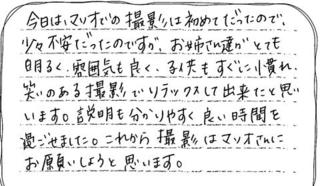 今日は、マリオでの撮影は初めてだったので、
少々不安だったのですが、お姉さん達がとても
明るく、雰囲気も良く、子供もすぐに慣れ、
笑いのある撮影でリラックスして出来たと思い
います。説明も分かりやすく良い時間を
過ごせました。これから撮影はマリオさんに
お願いしようと思います。